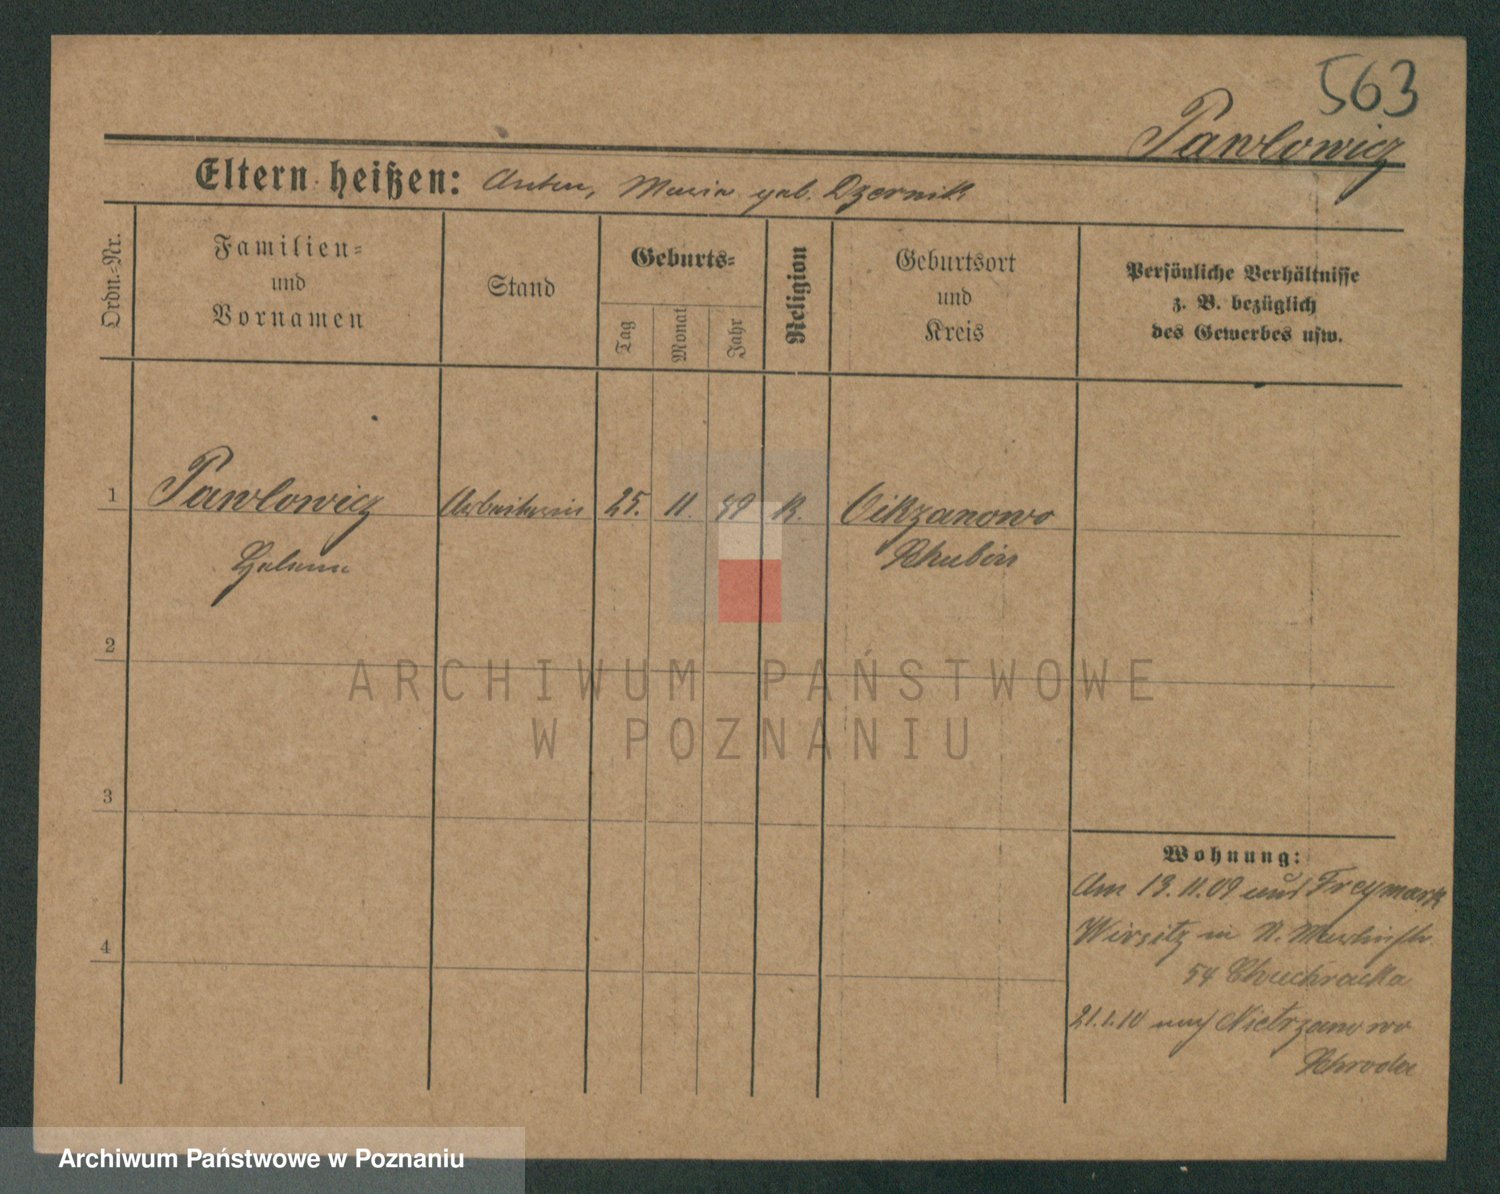 563
Pawlowicz
Eltern heißen: Anton, Maria geb. Dzernik
Ordn.-Nr.
Familien-
und
Vornamen
Stand
Geburts-
Tag
Monat
Jahr
Religion
Geburtsort
und
Kreis
Persönliche Verhältnisse
z. B. bezüglich
des Gewerbes usw.
1
Pawlowicz
Arbeiterin
25.
11.
89
K.
Schubin
Helena
2
ARCHIWUM PAŃSTWOWE
W POZNANIU
3
Wohnung:
Am 13.11.09 aus Freymark
Wirsitz in N.
54
4
21.1.10 nach Nietrzanowo
Schroda
Archiwum Państwowe w Poznaniu